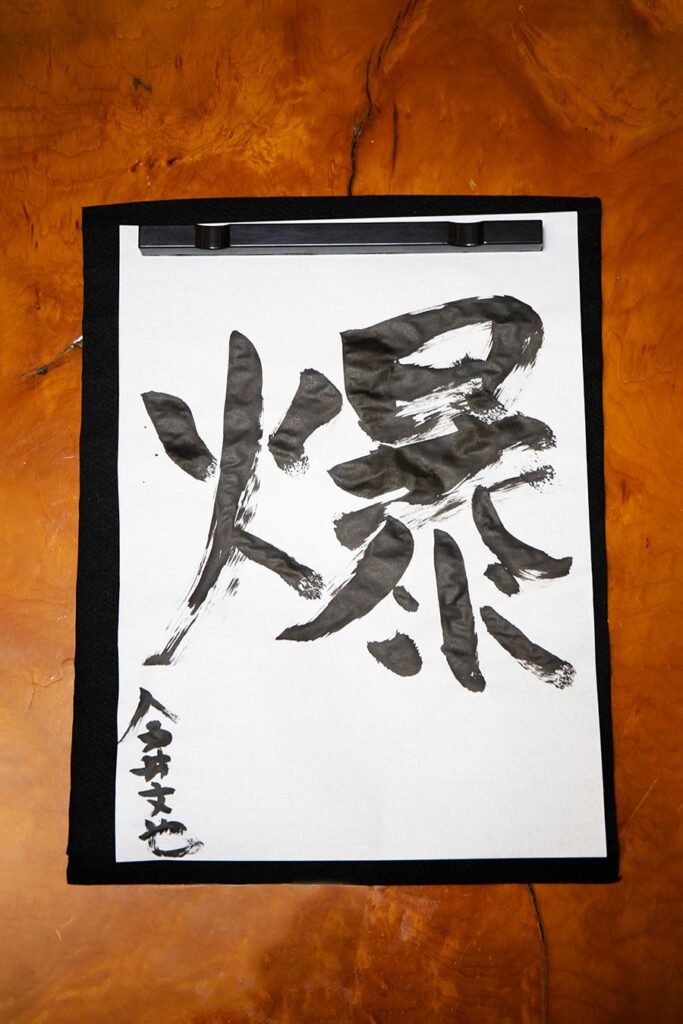 爆
今井文也